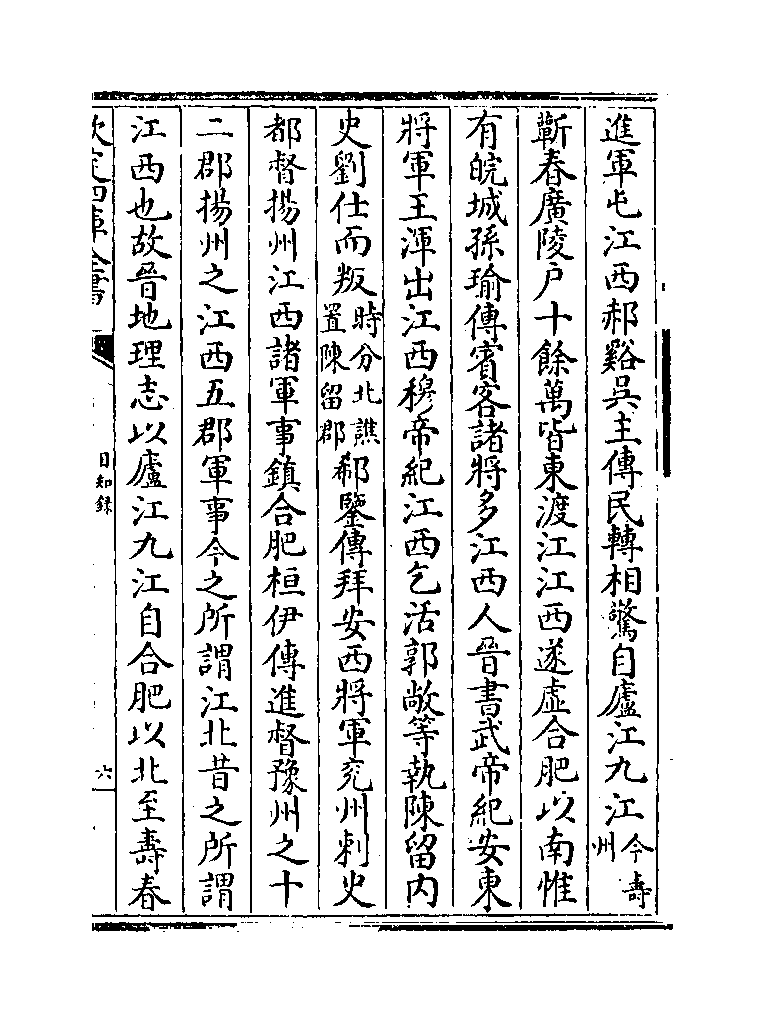 進軍屯江西郝谿吳主傳民轉相驚自廬江九江今壽州
蘄春廣陵戶十餘萬皆東渡江江西遂虛合肥以南惟
有皖城孫瑜傳賓客諸將多江西人晉書武帝紀安東
將軍王渾出江西穆帝紀江西乞活郭敞等執陳留內
史劉仕而叛時分北譙置陳留郡郗鑒傳拜安西將軍兖州刺史
都督揚州江西諸軍事鎮合肥桓伊傳進督豫州之十
二郡揚州之江西五郡軍事今之所謂江北昔之所謂
江西也故晉地理志以廬江九江自合肥以北至壽春
欽定四庫全書
日知錄
六